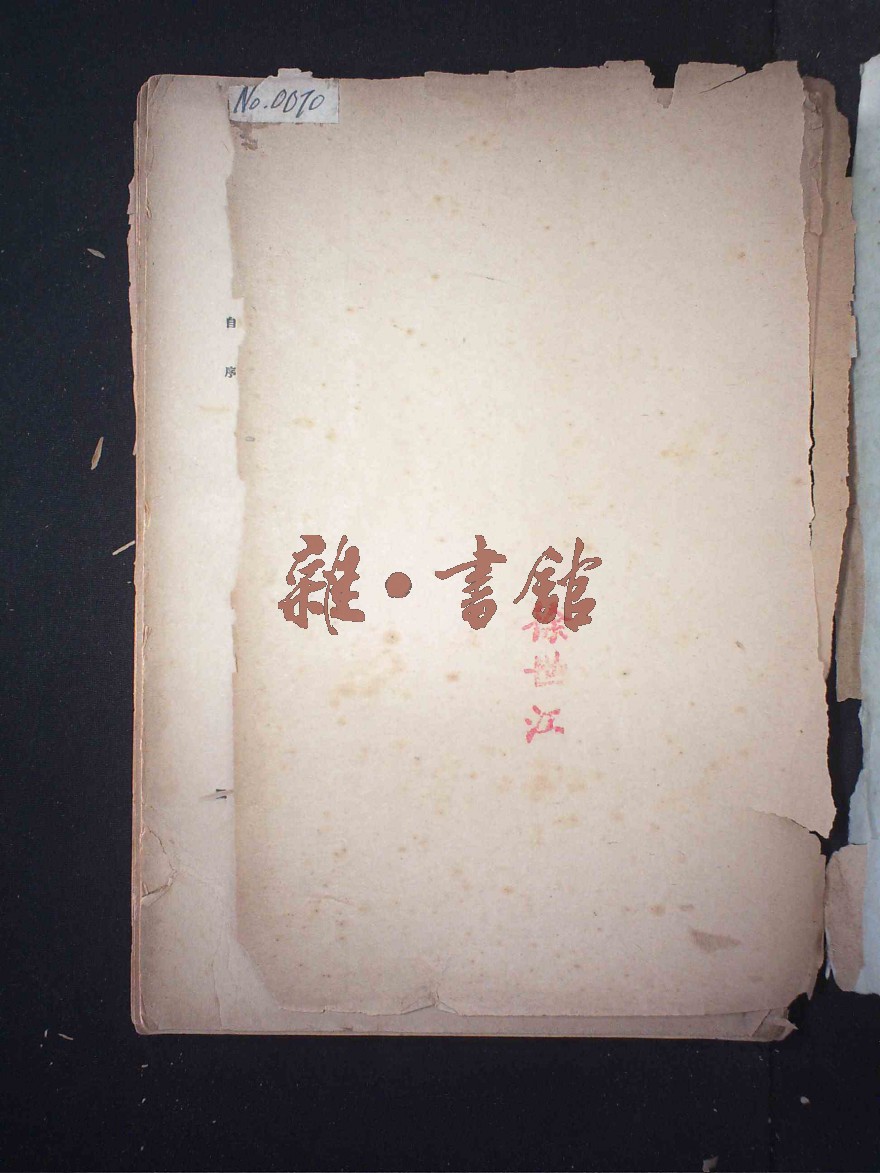 No.0070
自序
雜·書館
世江